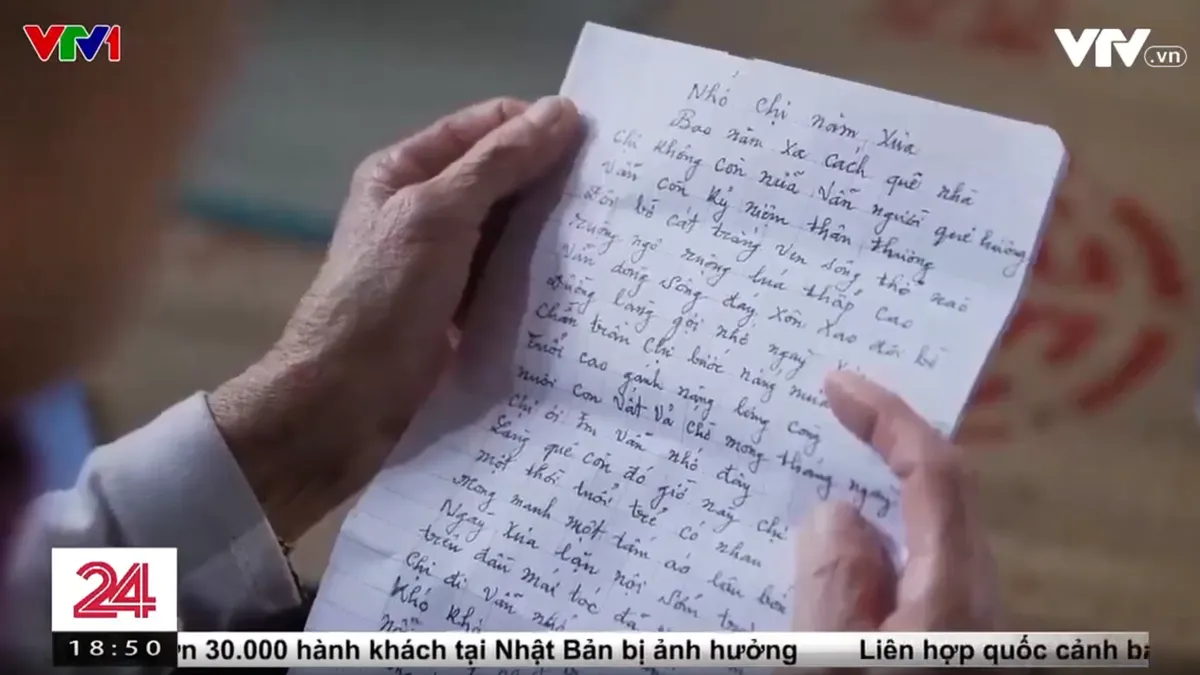 VTV1
VTV.vn
Nhớ chị năm xưa
Bao năm xa cách quê nhà
Chị không còn nữa vẫn người quê hương
Vẫn còn kỷ niệm thân thương
bờ cát trắng ven sông thở nao
ruộng ngô ruộng lúa thấp cao
Vẫn dòng sông đáy xôn xao đôi bờ
Đường làng gợi nhớ ngày
Chân trần Chị bước nắng mưa
Tuổi cao gánh nặng lưng còng
nuôi con vất vả chờ mong tháng ngày
Chị ơi Em vẫn nhớ đây
Làng quê còn đó giờ này chị
một thời tuổi trẻ có nhau
Mong manh một tấm áo
Ngày xưa lặn lội sớm
trên đầu mái tóc đã
Chị đi vẫn nhớ
Khó
24
18:50
30.000 hành khách tại Nhật Bản bị ảnh hưởng
Liên hợp quốc cảnh